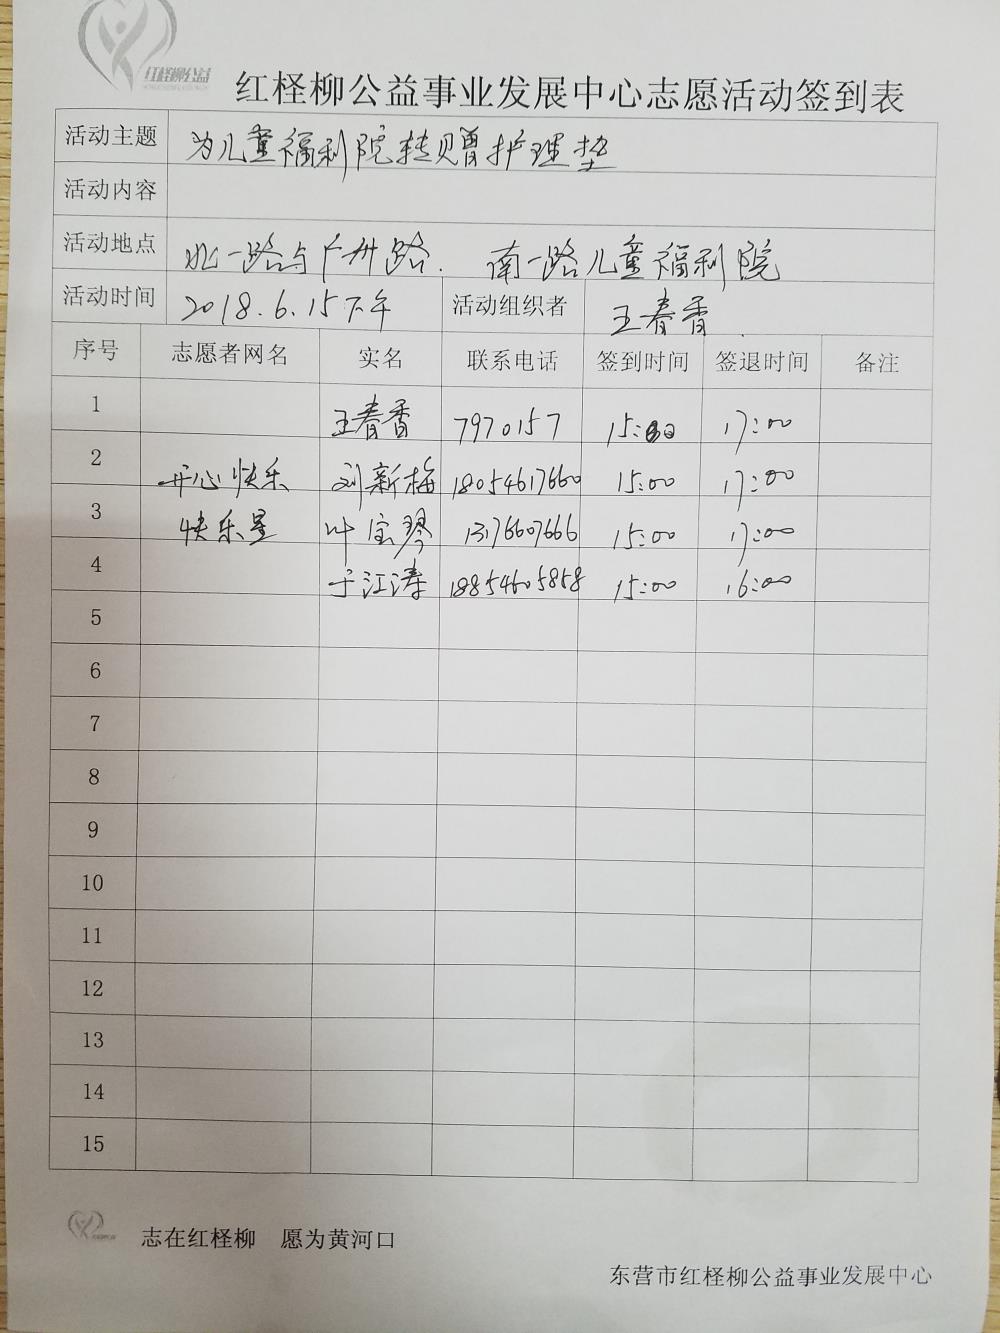 红柽柳公益
红柽柳公益事业发展中心志愿活动签到表
活动主题 为儿童福利院转赠护理垫
活动内容
活动地点 北一路与广州路. 南一路儿童福利院
活动时间 2018.6.15下午 活动组织者 王春香.
序号 志愿者网名 实名 联系电话 签到时间 签退时间 备注
1 王春香 7970157 15:00 17:00
2 开心快乐 刘新梅 18054617660 15:00 17:00
3 快乐星 叶宝琴 13176607666 15:00 17:00
4 于江涛 18854605858 15:00 16:00
5
6
7
8
9
10
11
12
13
14
15
志在红柽柳 愿为黄河口
东营市红柽柳公益事业发展中心